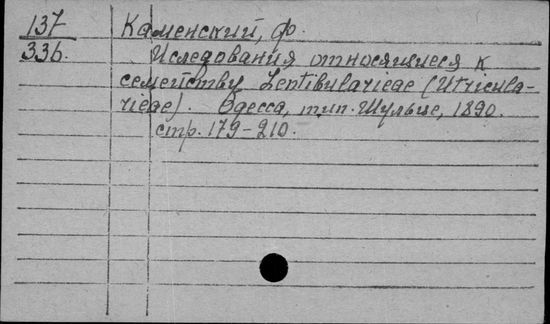 137 Каменский, Ф.
336. Иследования относящиеся к
семейству Lentibularieae (Utricula-
rieae). Одесса, тип. Шульце, 1890.
стр. 179-210.